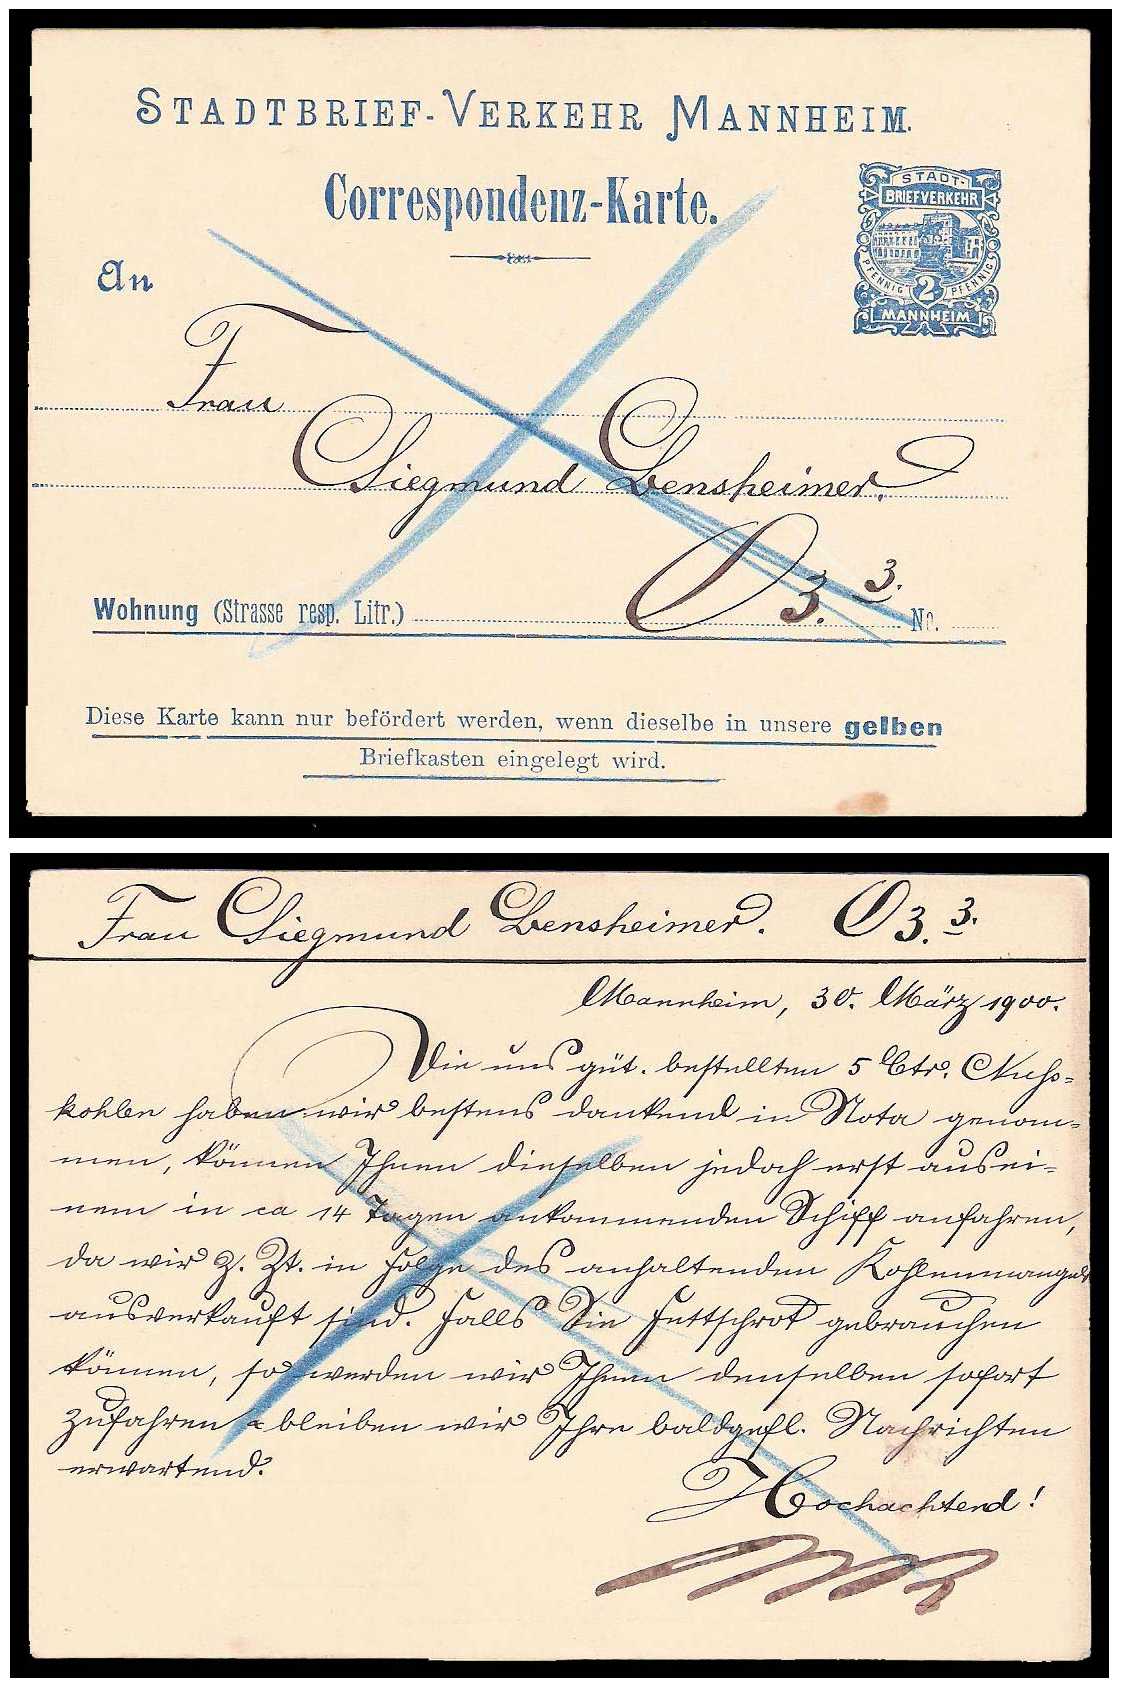 STADTBRIEF-VERKEHR MANNHEIM.
Correspondenz-Karte.
STADT-
BRIEFVERKEHR
PFENNIG 2 PFENNIG
MANNHEIM
An
Frau
Siegmund Bensheimer.
Wohnung (Strasse resp. Litr.) O 3. 3. No.
Diese Karte kann nur befördert werden, wenn dieselbe in unsere gelben
Briefkasten eingelegt wird.
Frau Siegmund Bensheimer. O 3. 3.
Mannheim, 30. März 1900.
Die uns güt. bestellten 5 Ctr. Nuss=
kohlen haben wir bestens dankend in Nota genom=
men, können Ihnen dieselben jedoch erst aus ei=
nem in ca 14 Tagen ankommenden Schiff anfahren,
da wir z. Zt. in Folge des anhaltenden Kohlenmangels
ausverkauft sind. Falls Sie Fettschrot gebrauchen
können, so werden wir Ihnen denselben sofort
zufahren & bleiben wir Ihre baldgefl. Nachrichten
erwartend.
Hochachtend!